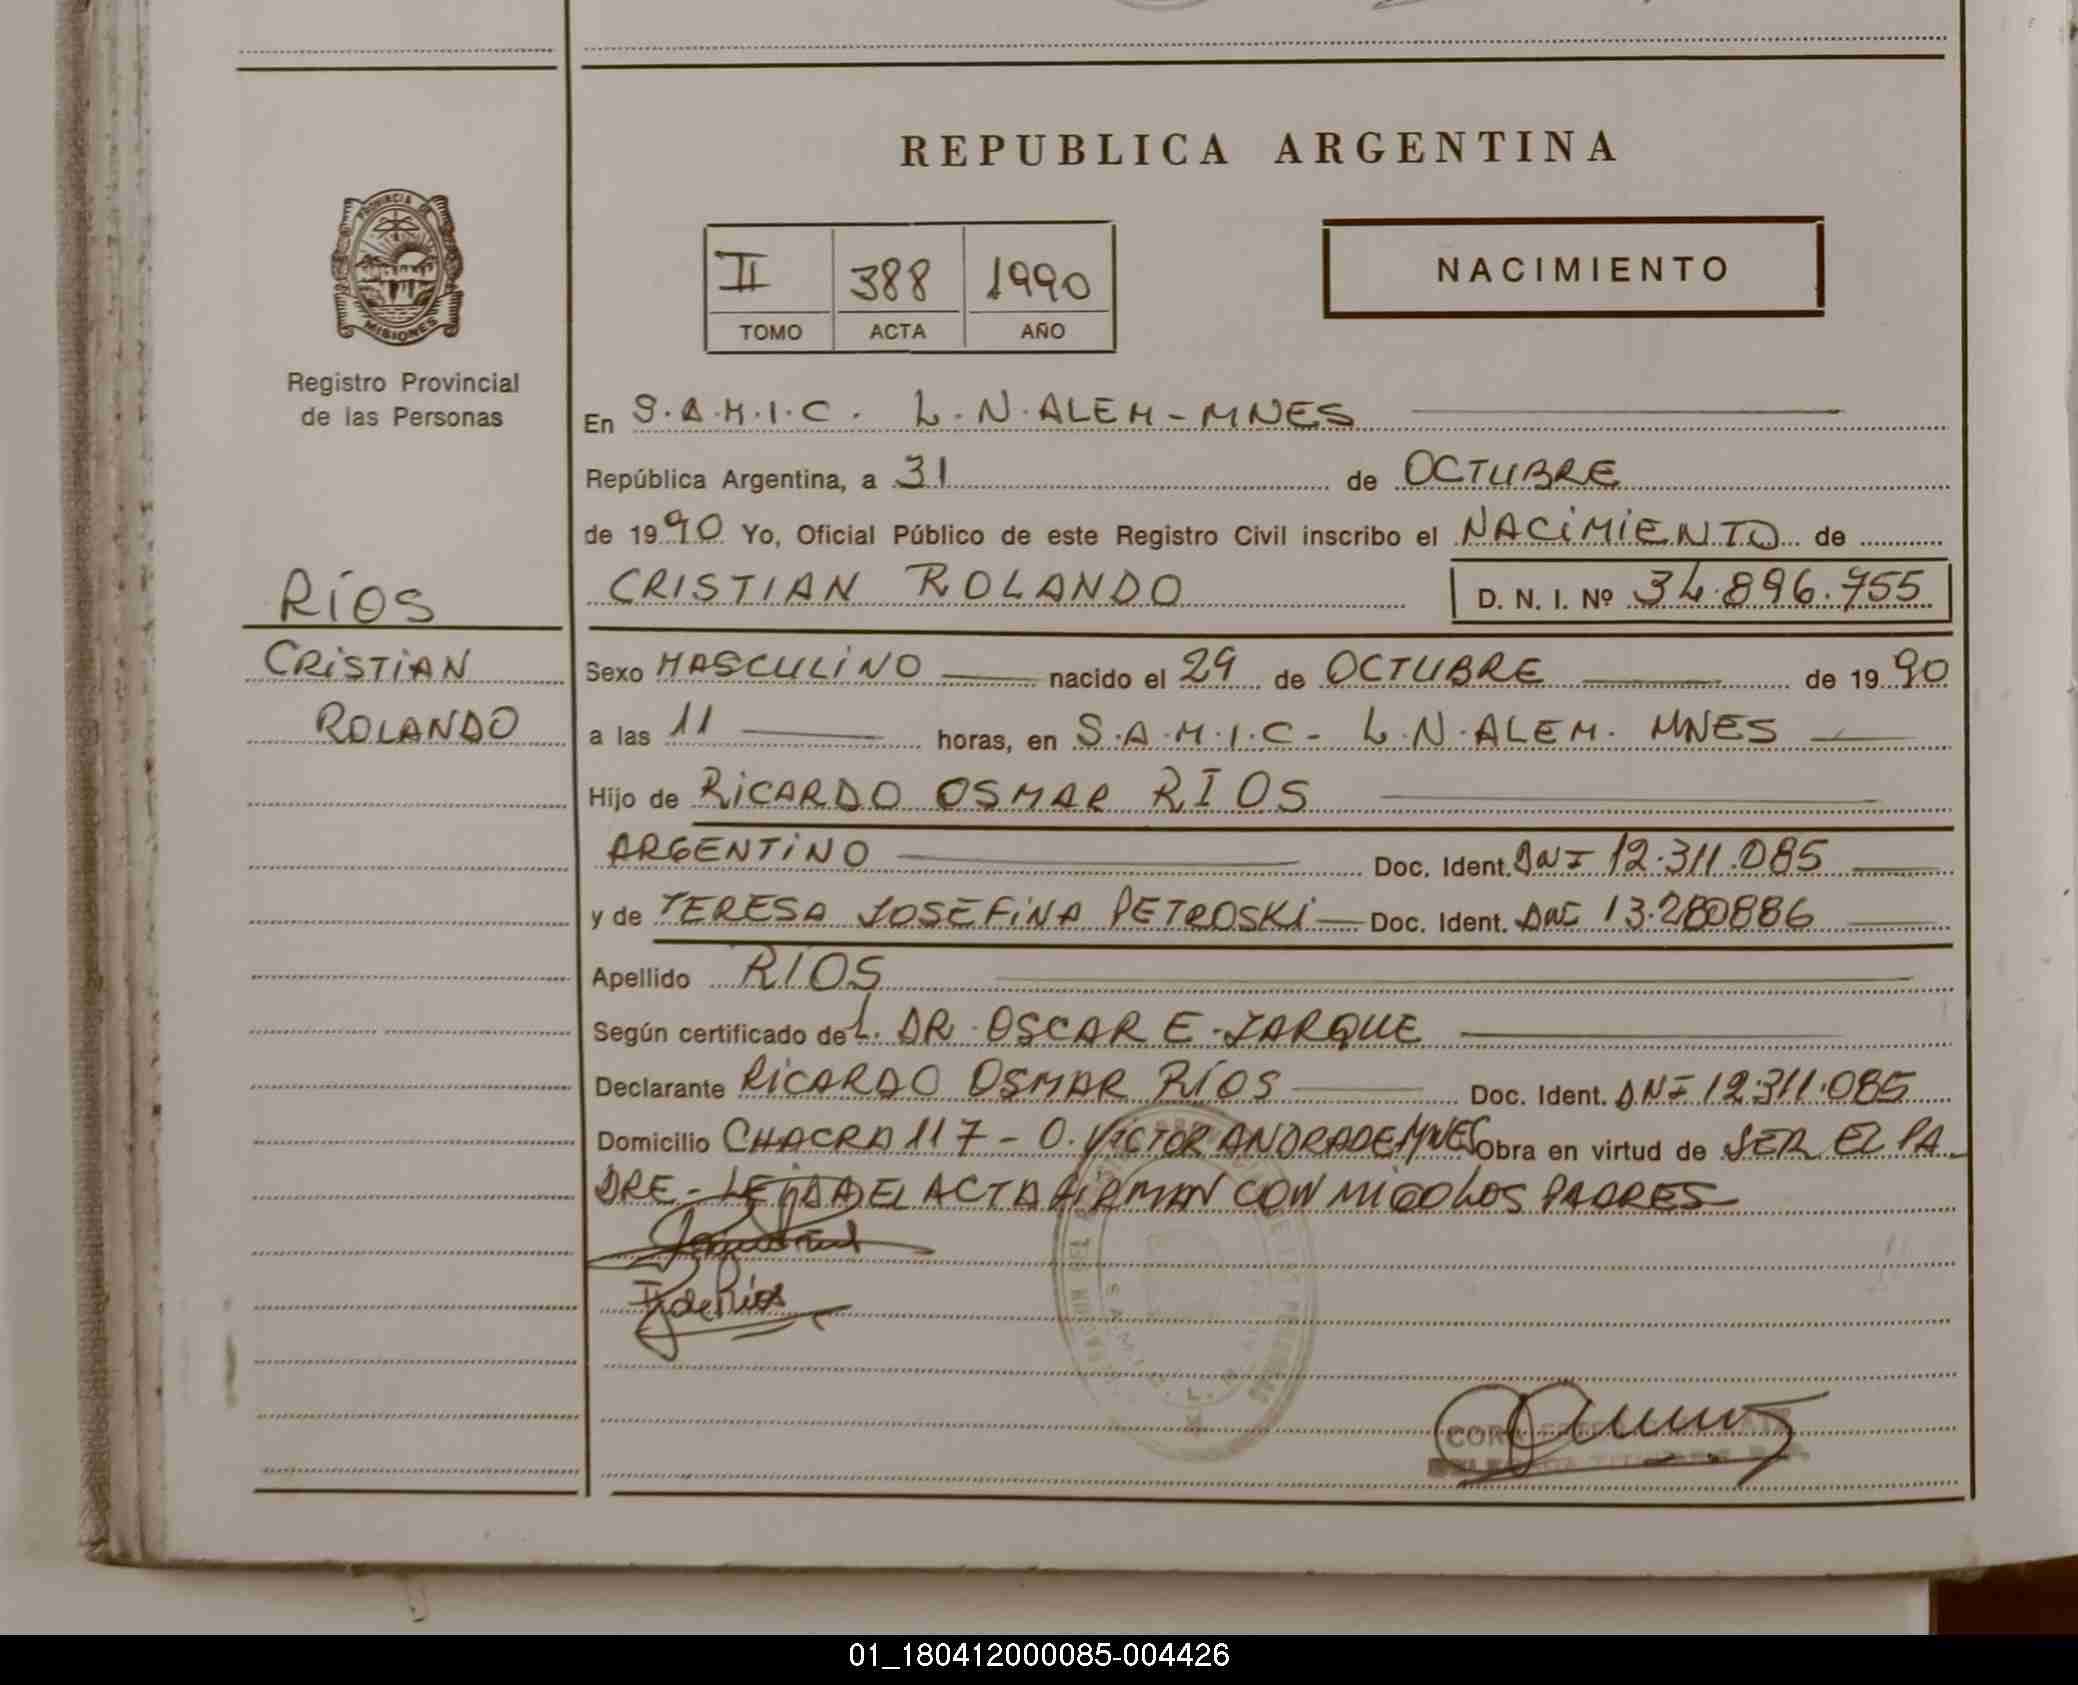 REPUBLICA ARGENTINA
PROVINCIA DE
MISIONES
Registro Provincial
de las Personas
II 388 1990
TOMO ACTA AÑO
NACIMIENTO
En S.A.M.I.C. L.N.ALEM-MNES
República Argentina, a 31 de OCTUBRE
de 1990 Yo, Oficial Público de este Registro Civil inscribo el NACIMIENTO de
CRISTIAN ROLANDO D. N. I. Nº 34.896.755
RÍOS
CRISTIAN
ROLANDO
Sexo MASCULINO nacido el 29 de OCTUBRE de 1990
a las 11 horas, en S.A.M.I.C- L.N.ALEM. MNES
Hijo de RICARDO OSMAR RIOS
ARGENTINO Doc. Ident. DNI 12.311.085
y de TERESA JOSEFINA PETROSKI Doc. Ident. DNI 13.280886
Apellido RIOS
Según certificado de L. DR. OSCAR E. JARQUE
Declarante RICARDO OSMAR RÍOS Doc. Ident. DNI 12.311.085
Domicilio CHACRA 117 - O. VICTOR ANDRADE MNES Obra en virtud de SER EL PA
DRE - LEIDA EL ACTA FIRMAN CON MIGO LOS PADRES
de Rios
01_180412000085-004426